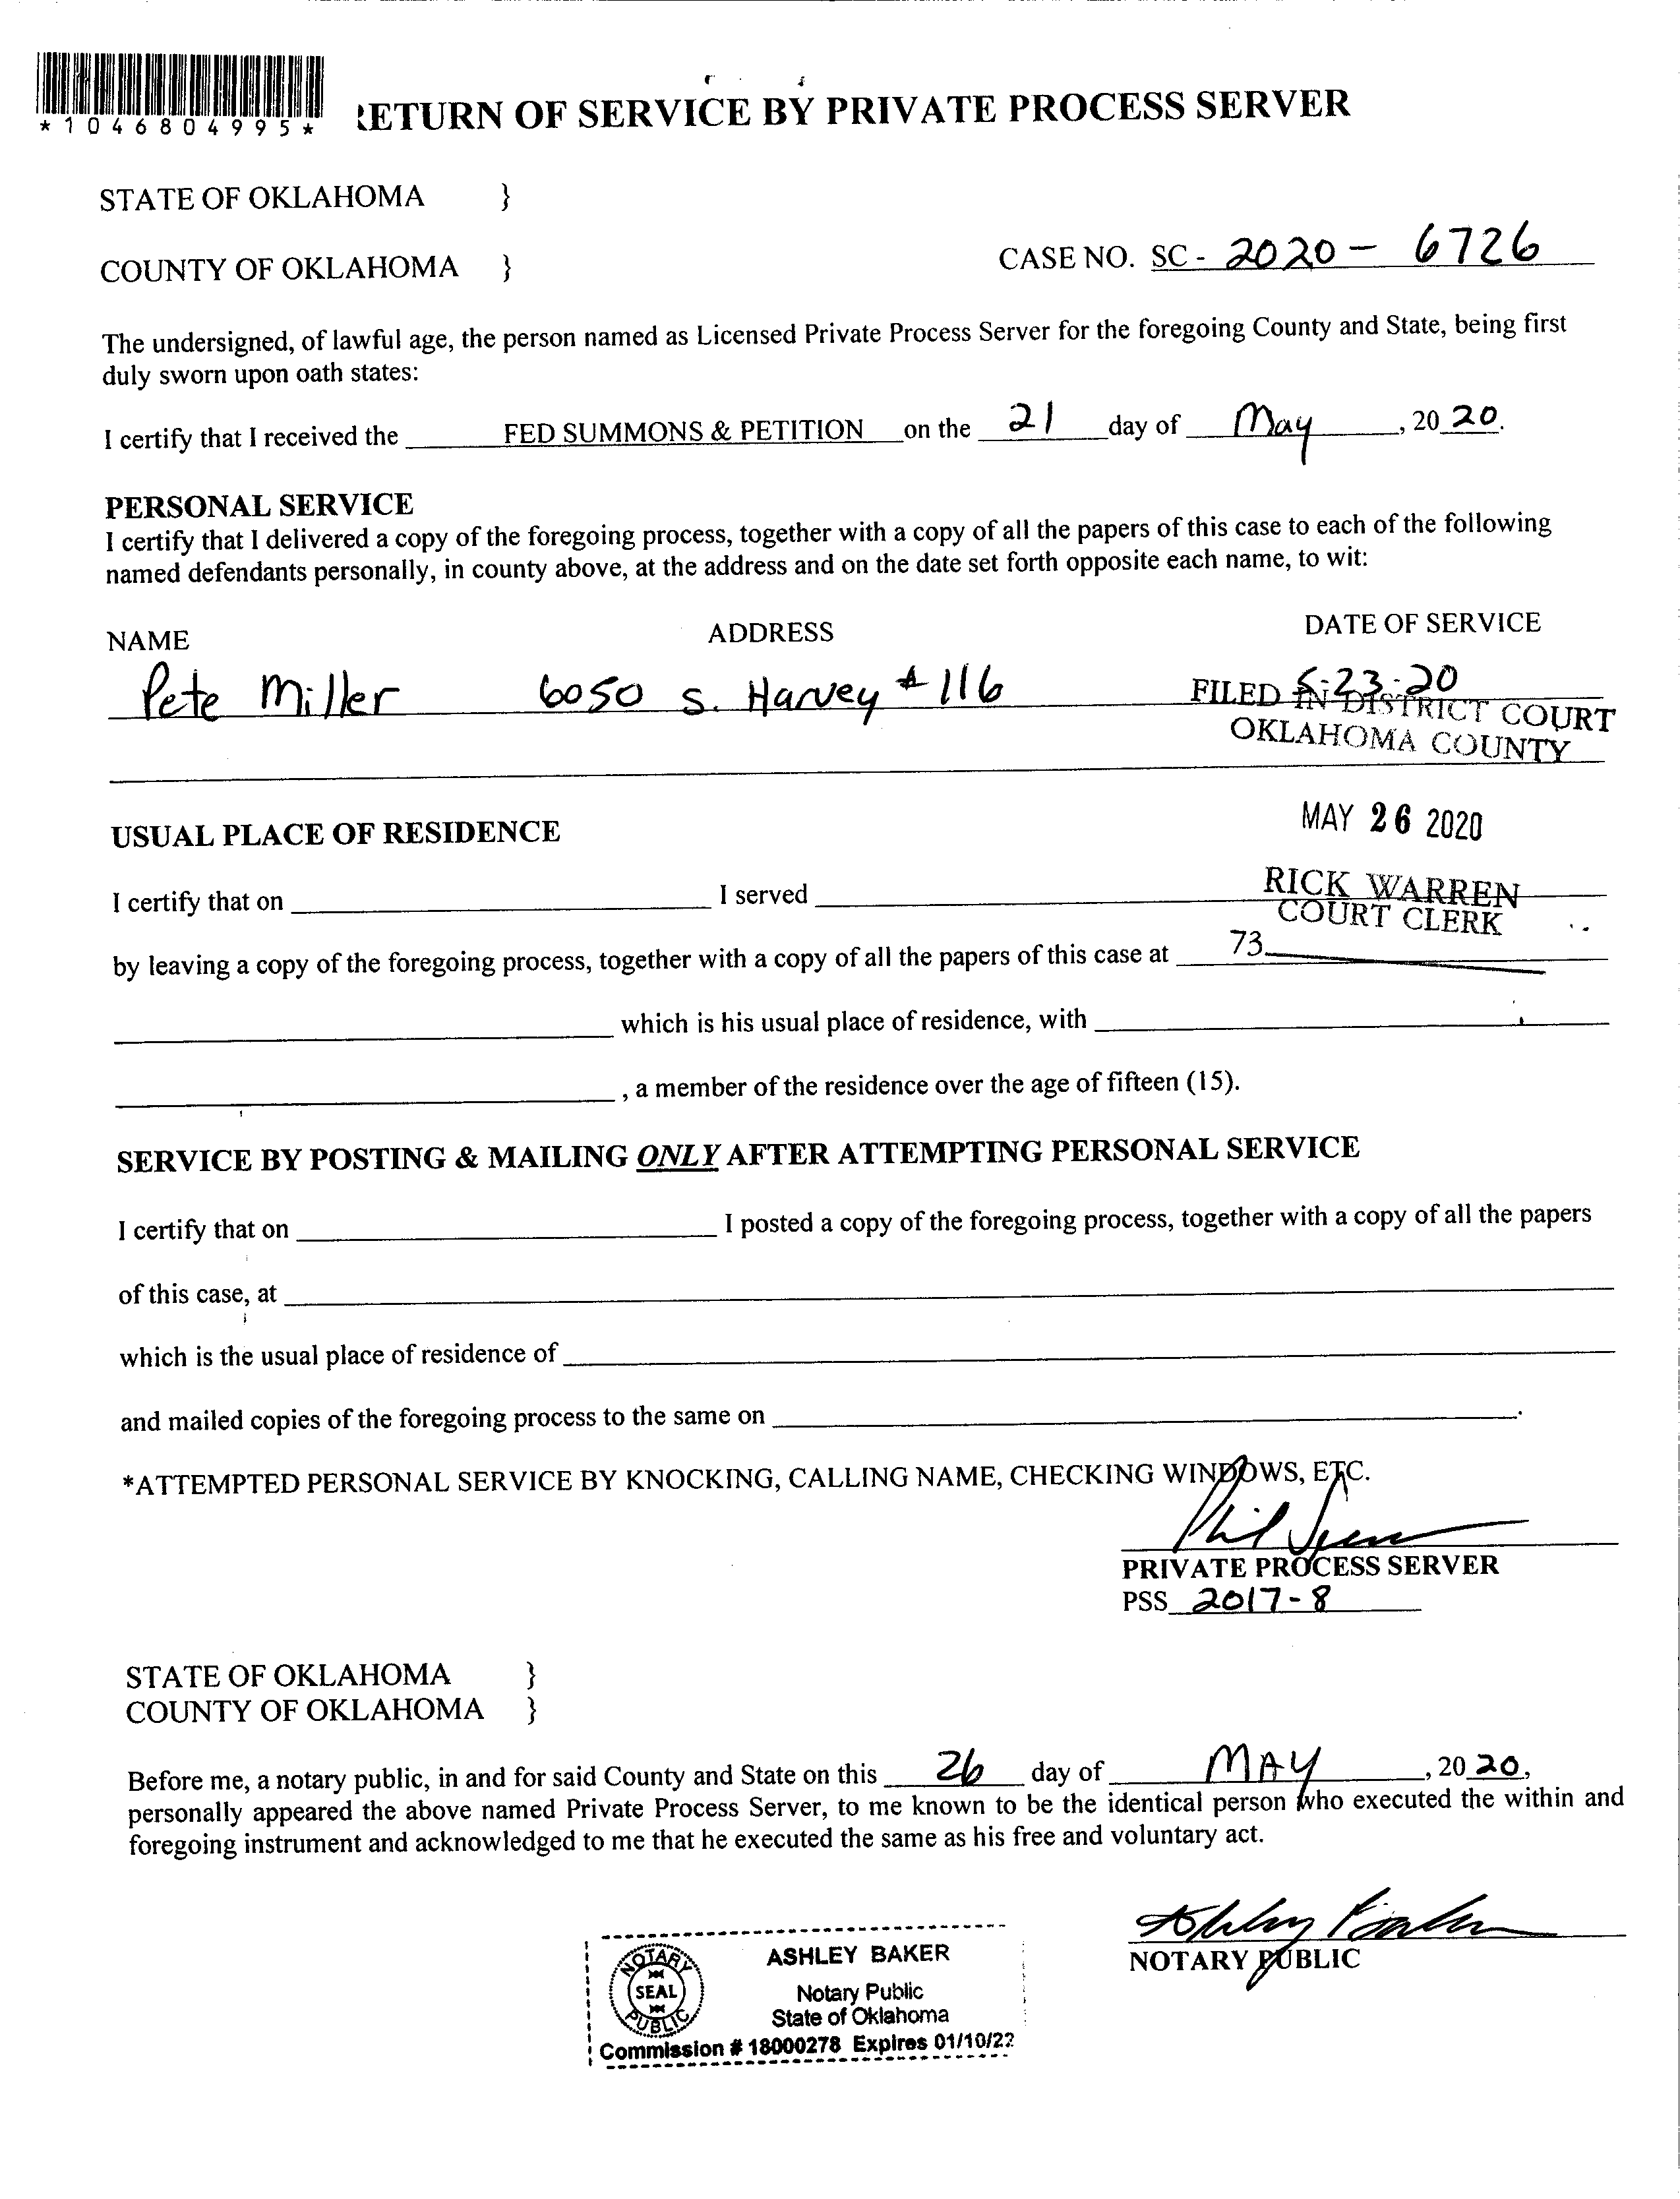 *1046804995*
RETURN OF SERVICE BY PRIVATE PROCESS SERVER
STATE OF OKLAHOMA }
COUNTY OF OKLAHOMA } CASE NO. SC - 2020 - 6726
The undersigned, of lawful age, the person named as Licensed Private Process Server for the foregoing County and State, being first
duly sworn upon oath states:
I certify that I received the FED SUMMONS & PETITION on the 21 day of May, 2020.
PERSONAL SERVICE
I certify that I delivered a copy of the foregoing process, together with a copy of all the papers of this case to each of the following
named defendants personally, in county above, at the address and on the date set forth opposite each name, to wit:
NAME ADDRESS DATE OF SERVICE
Pete Miller 6050 S. Harvey # 116 5-23-20
FILED IN DISTRICT COURT
OKLAHOMA COUNTY
MAY 26 2020
USUAL PLACE OF RESIDENCE
RICK WARREN
COURT CLERK
I certify that on ____ I served ____
73
by leaving a copy of the foregoing process, together with a copy of all the papers of this case at ____
____ which is his usual place of residence, with ____
____ , a member of the residence over the age of fifteen (15).
SERVICE BY POSTING & MAILING ONLY AFTER ATTEMPTING PERSONAL SERVICE
I certify that on ____ I posted a copy of the foregoing process, together with a copy of all the papers
of this case, at ____
which is the usual place of residence of ____
and mailed copies of the foregoing process to the same on ____.
*ATTEMPTED PERSONAL SERVICE BY KNOCKING, CALLING NAME, CHECKING WINDOWS, ETC.
Phil
PRIVATE PROCESS SERVER
PSS 2017-8
STATE OF OKLAHOMA }
COUNTY OF OKLAHOMA }
Before me, a notary public, in and for said County and State on this 26 day of MAY, 2020,
personally appeared the above named Private Process Server, to me known to be the identical person who executed the within and
foregoing instrument and acknowledged to me that he executed the same as his free and voluntary act.
Ashley
NOTARY PUBLIC
NOTARY PUBLIC
SEAL
ASHLEY BAKER
Notary Public
State of Oklahoma
Commission # 18000278 Expires 01/10/22